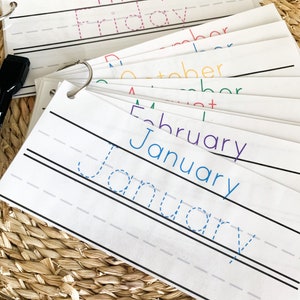 Friday
October
August
February
January
January